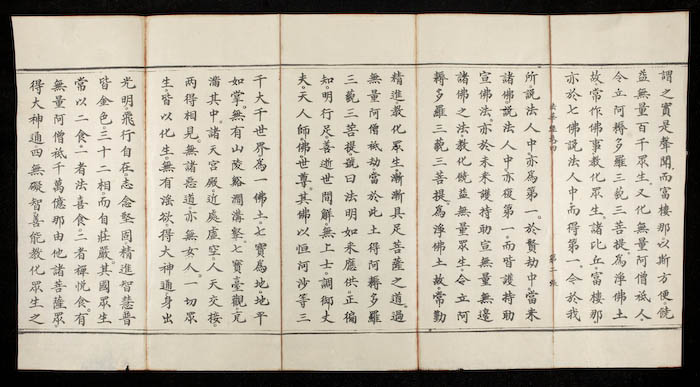 謂之實是聲聞。而富樓那以斯方便。饒
益無量百千衆生。又化無量阿僧祇人。
令立阿耨多羅三藐三菩提。為淨佛土
故。常作佛事。教化衆生。諸比丘。富樓那。
亦於七佛說法人中而得第一。今於我
法華經卷四 第二張
所說法人中亦為第一。於賢劫中當來
諸佛。說法人中亦復第一。而皆護持助
宣佛法。亦於未來護持助宣無量無邊
諸佛之法。教化饒益無量衆生。令立阿
耨多羅三藐三菩提。為淨佛土故。常勤
精進教化衆生。漸漸具足菩薩之道。過
無量阿僧祇劫。當於此土得阿耨多羅
三藐三菩提。號曰法明如來應供。正徧
知。明行足善逝世間解無上士。調御丈
夫。天人師。佛世尊。其佛以恒河沙等三
千大千世界為一佛土。七寶為地。地平
如掌。無有山陵谿澗溝壑。七寶臺觀。充
滿其中。諸天宮殿近處虛空。人天交接。
兩得相見。無諸惡道。亦無女人。一切衆
生。皆以化生。無有淫欲。得大神通。身出
光明。飛行自在。志念堅固。精進智慧。普
皆金色。三十二相。而自莊嚴。其國衆生
常以二食。一者法喜食。二者禪悅食。有
無量阿僧祇千萬億那由他諸菩薩衆
得大神通。四無礙智。善能教化衆生之